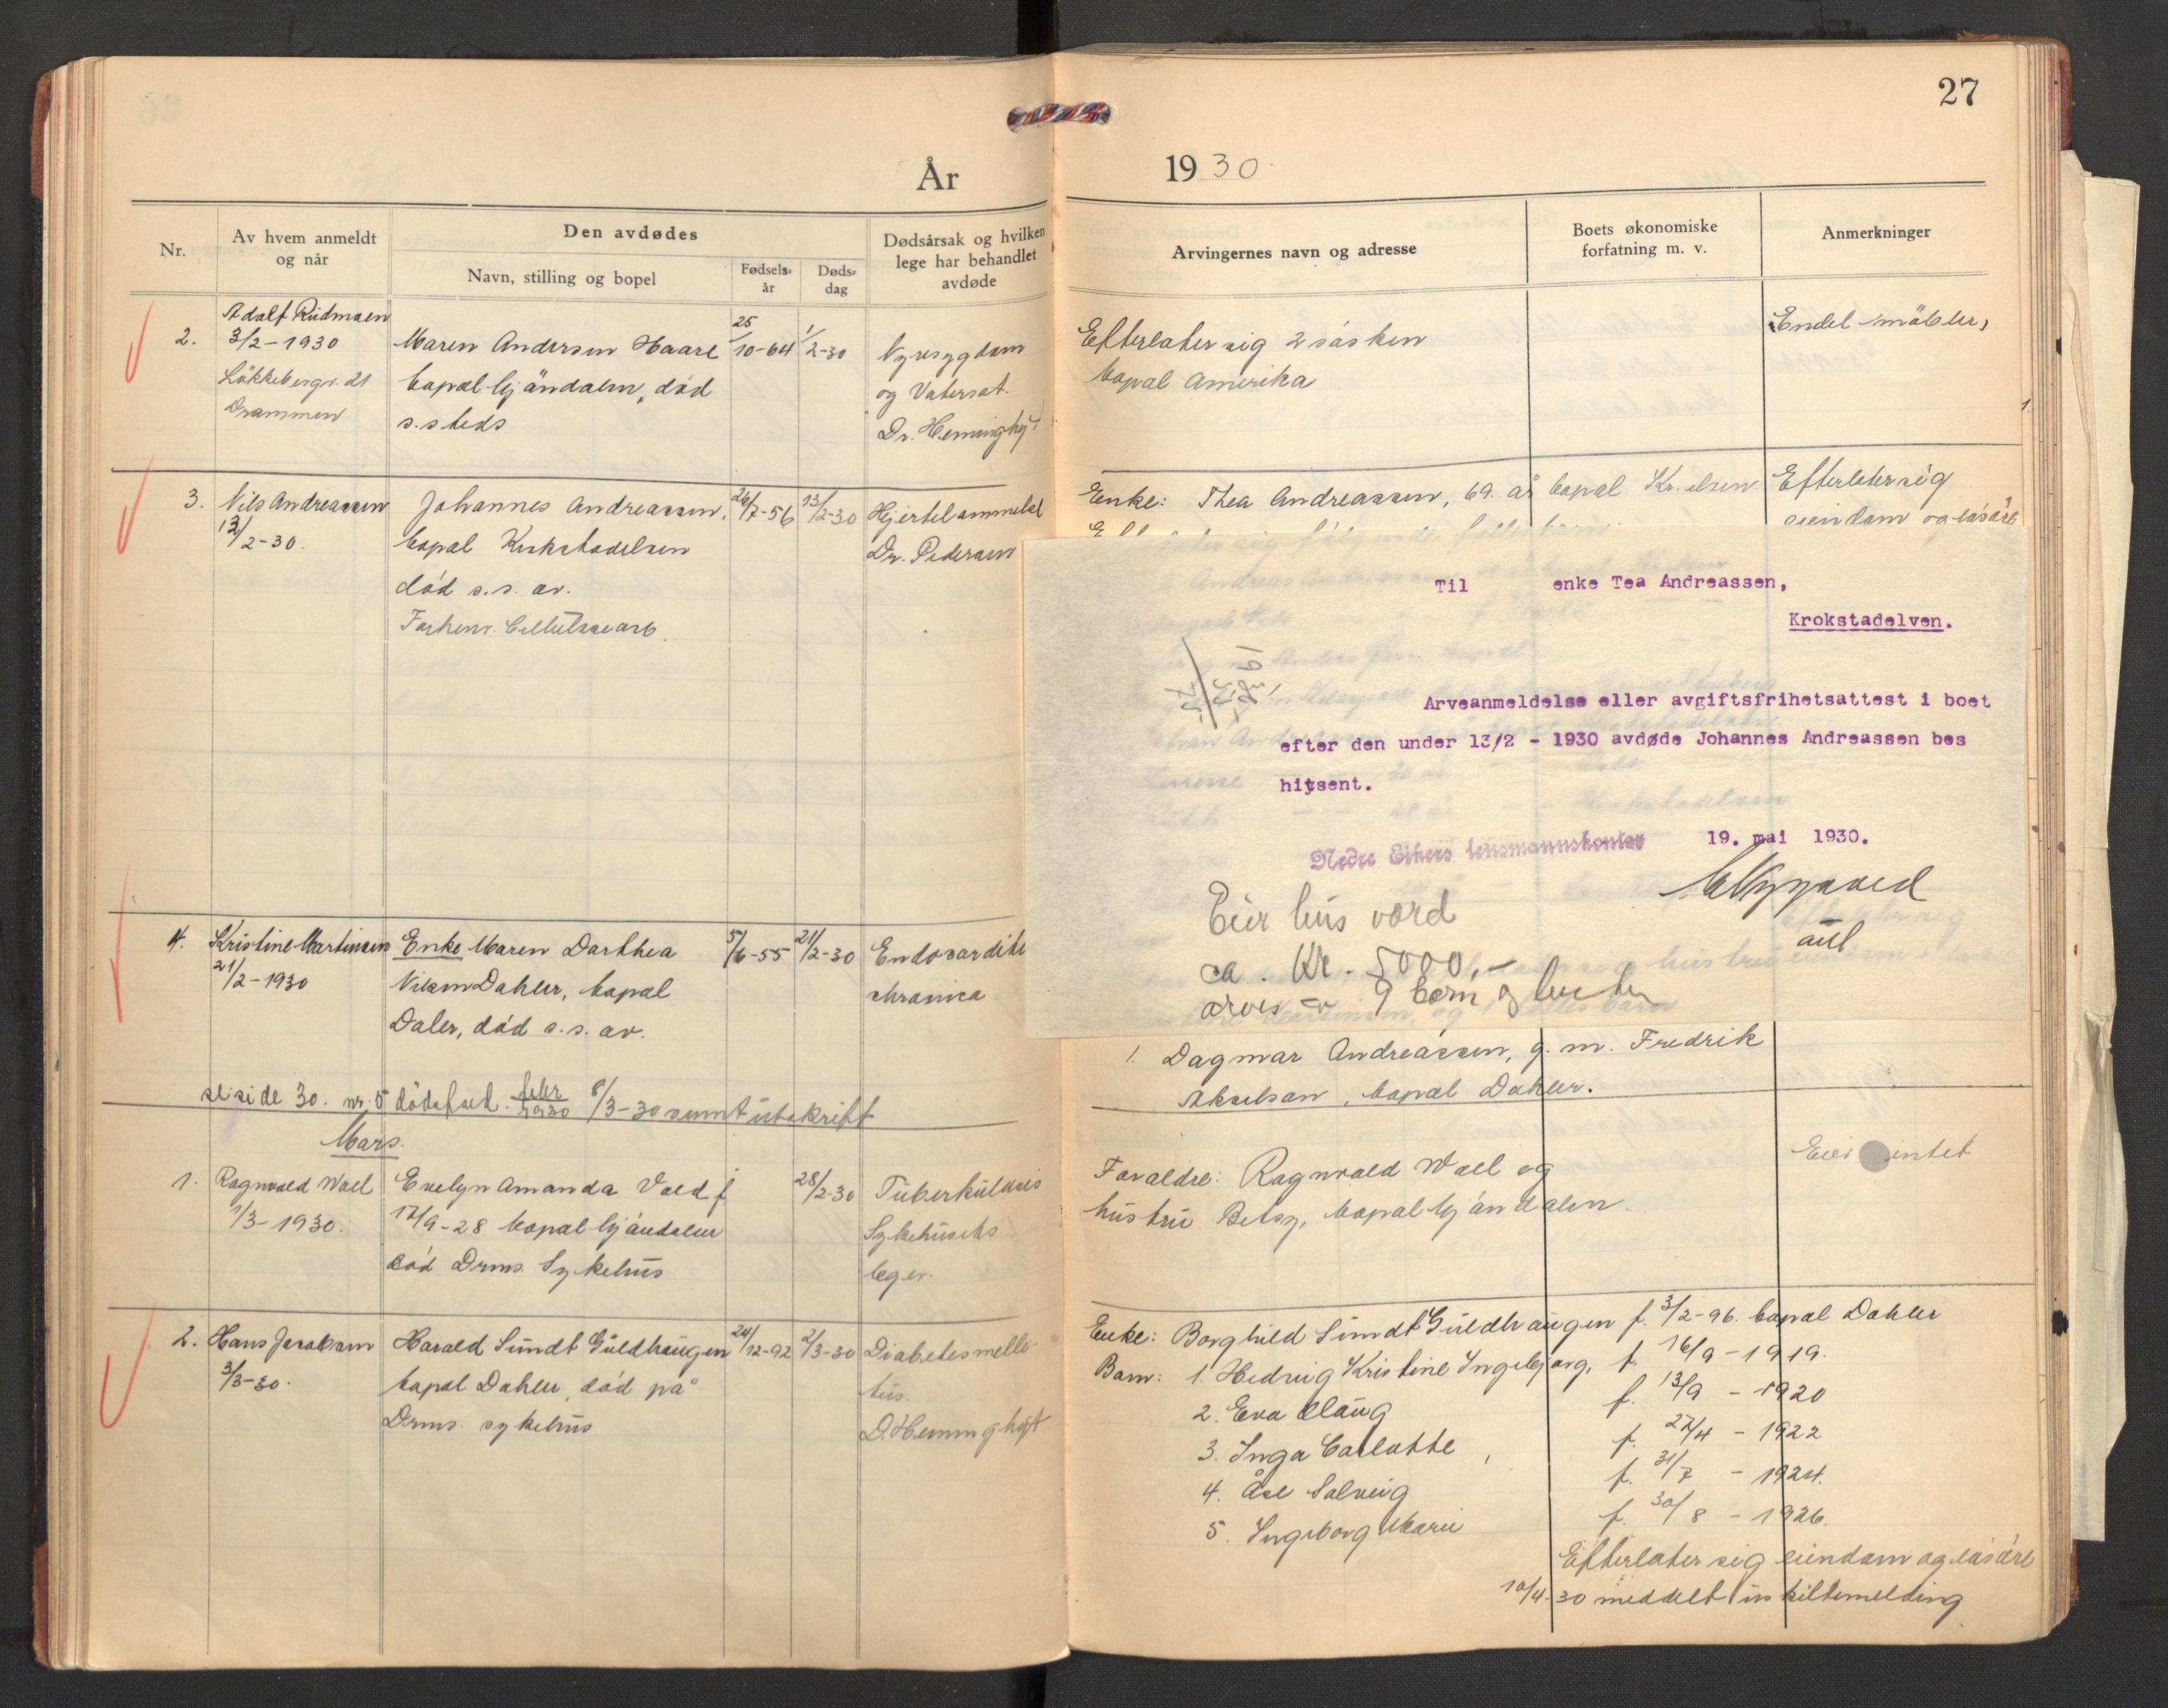 27
År 1930.
Nr.
Av hvem anmeldt og når
Den avdødes
Navn, stilling og bopel
Fødsels-år
Døds-dag
Dødsårsak og hvilken lege har behandlet avdøde
Arvingernes navn og adresse
Boets økonomiske forfatning m. v.
Anmerkninger
2.
Adolf Rudmoen
3/2-1930
Løkkebergr. 21
Drammen
Maren Andersen Haare
bopæl Mjøndalen, død
s.steds
25/10-64
1/2-30
Nyresygdom
og Vatersot.
Dr. Heminghyt
Efterlater sig 2 søsken
bopæl Amerika
Endel møbler,
3.
Nils Andreassen
13/2-30.
Johannes Andreassen,
bopæl Krokstadelven
død s.s. av.
Forhenv. Cellulosearb.
26/7-56
13/2-30
Hjertelammelse
Dr. Pedersen
Enke: Thea Andreassen, 69. år bopæl Kr.elven.
Efterleter sig
eiendom og løsøre
Til enke Tea Andreassen,
Krokstadelven.
Arveanmeldelse eller avgiftsfrihetsattest i boet
efter den under 13/2 - 1930 avdøde Johannes Andreassen bes
hitsent.
Nedre Eikers lensmannskontor 19. mai 1930.
Eier hus verd
ca. Kr. 5000,-
arves av 9 børn og
4.
Kristine Martinsen
21/2-1930
Enke Maren Dorthea
Nilsen Dahler, bopæl
Daler, død s.s. av.
5/6-55
21/2-30
Endocardite
chronica
1. Dagmar Andreassen, g.m. Fredrik
Akselsen, bopæl Dahler.
se side 30. nr. 5 dødsfæl. febr 1930 8/3-30 sendt utskrift
Mars.
1.
Ragnvald Wael
1/3-1930.
Evelyn Amanda Vold f.
17/9-28 bopæl Mjøndalen
død Drms. Sykehus
28/2-30
Tuberkulosis
Sykehusets
leger.
Foreldre: Ragnvald Wael og
hustru Betsy, bopæl Mjøndalen.
Eier intet
2.
Hans Jacobsen
3/3-30.
Harald Sundt Guldhaugen
bopæl Dahler, død på
Drms. sykehus
24/12-92
2/3-30
Diabetes melle-
tus.
D. Heminghyt
Enke: Borghild Sundt Guldhaugen f. 3/2-96. bopæl Dahler
Barn: 1. Hedvig Kristine Ingebjørg, f. 16/9-1919.
2. Eva Olaug f. 13/9 - 1920
3. Inga Carlotte, f. 27/4 - 1922
4. Åse Solveig f. 31/7 - 1924.
5. Ingeborg Marie f. 30/8 - 1926.
Efterlater sig eiendom og løsøre
10/4-30 meddelt uskiftemelding